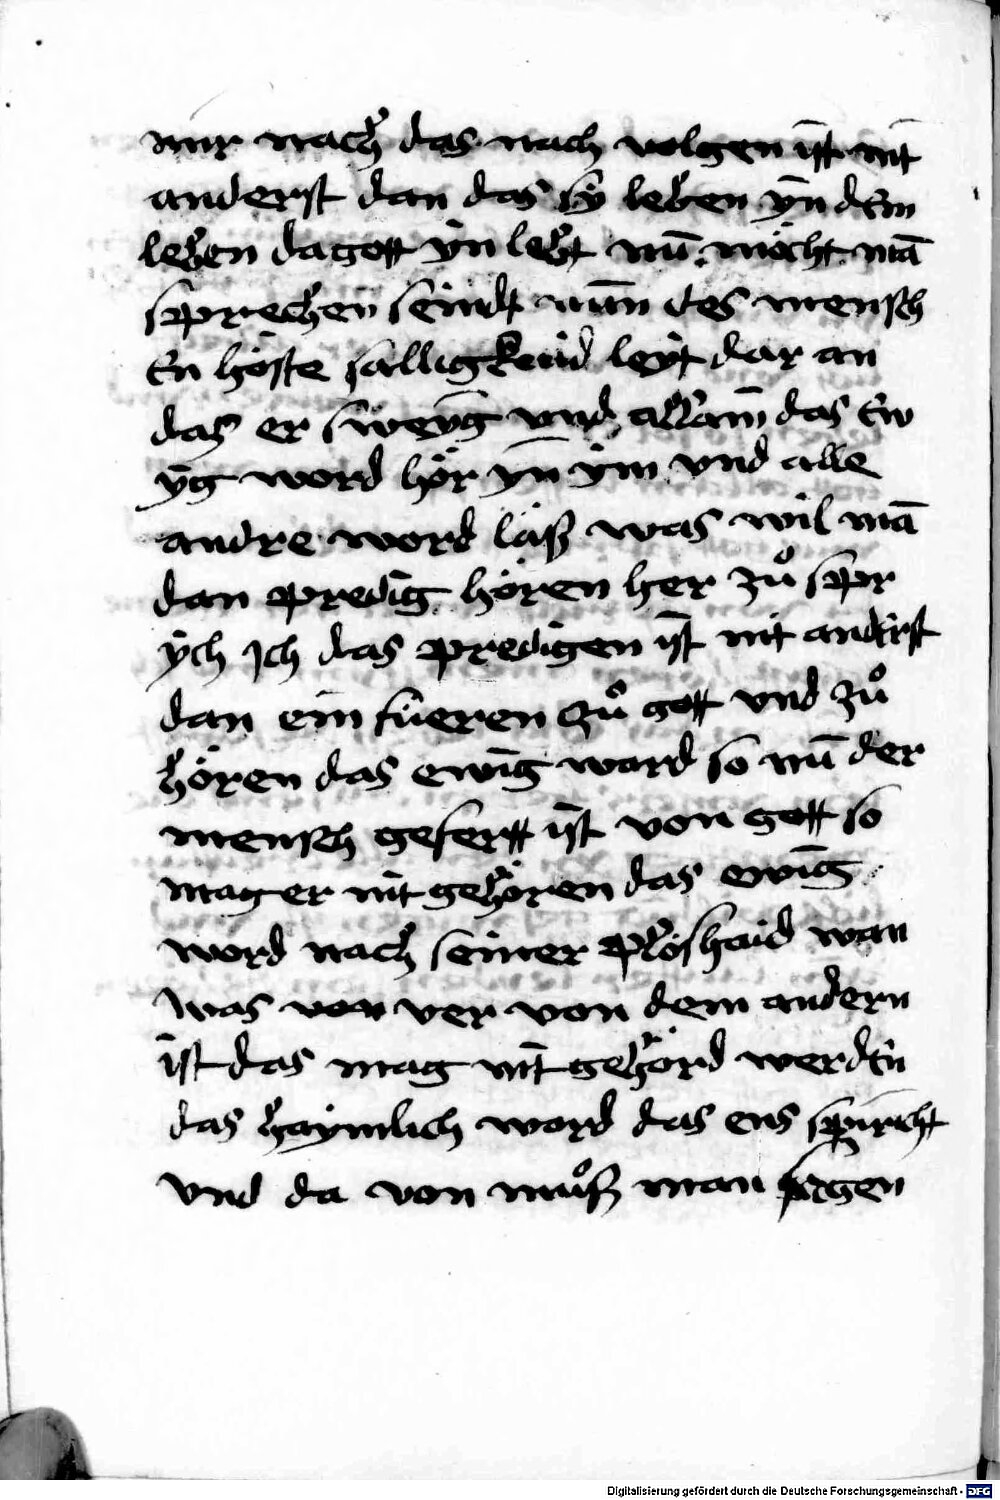 mir nach das nach volgen ist nit
anderst dan das sÿ leben ÿn dem
leben da gott ÿn lebt nū möcht mā
sprechen seindt nun des mensch
en höste salligkeid leÿt dar an
das er sweyg vnd allain das ew
ÿg word hör ÿn ÿm vnd alle
andre word läß was wil mā
dan predig hören her zů spr
ÿch Ich das predigen ist nit anderst
dan ein füeren zů gott vnd zů
hören das ewig word so nū der
mensch gefertt ist von gott so
mag er nit gehören das ewig
word nach seiner plöshaid wan
was von ver von dem andern
ist das mag nit gehörd werden
das haymlich word das ens spricht
vnd da von můß man sagen
Digitalisierung gefördert durch die Deutsche Forschungsgemeinschaft - DFG